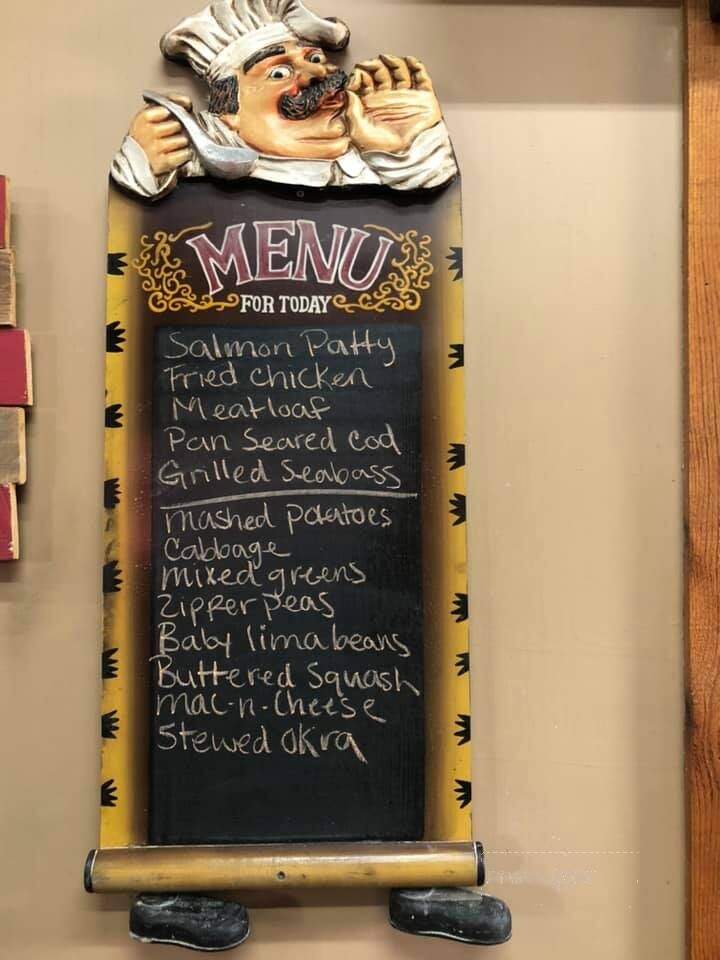 MENU
FOR TODAY
Salmon Patty
Fried Chicken
Meatloaf
Pan Seared Cod
Grilled Seabass
mashed potatoes
Cabbage
mixed greens
Zipper peas
Baby lima beans
Buttered Squash
mac-n-Cheese
Stewed Okra